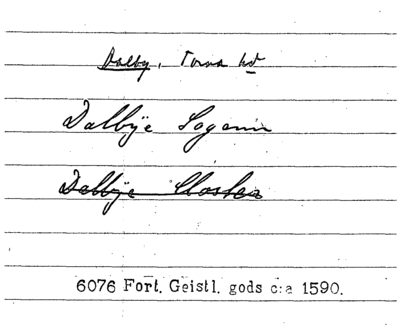 Dalby, Torna hd
Dalbÿe Sogenn
Dalbÿe Closter
6076 Fort. Geistl. gods c:a 1590.